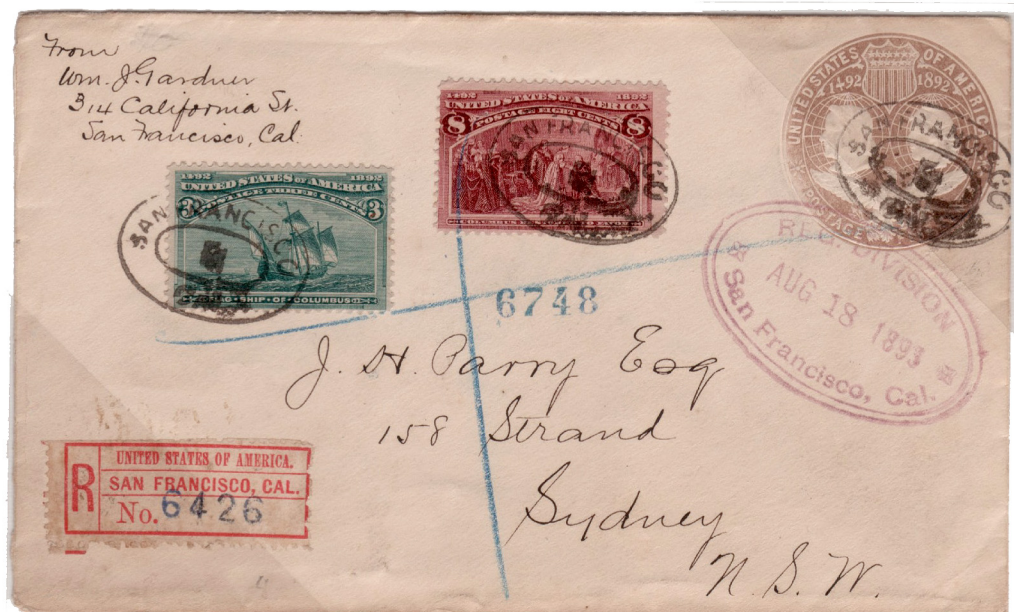 From
Wm. J. Gardner
314 California St.
San Francisco, Cal.
1492 1892
UNITED STATES OF AMERICA
POSTAGE THREE CENTS
3 3
FLAG·SHIP·OF·COLUMBUS
SAN FRANCISCO
1492 1892
UNITED STATES OF AMERICA
POSTAGE EIGHT CENTS
8 8
COLUMBUS
SAN FRANCISCO
UNITED STATES OF AMERICA
1492 1892
POSTAGE
SAN FRANCISCO
REG. DIVISION
AUG 18 1893
San Francisco, Cal.
6748
J. H. Parry Esq
158 Strand
Sydney
N. S. W.
R
UNITED STATES OF AMERICA.
SAN FRANCISCO, CAL.
No. 6426